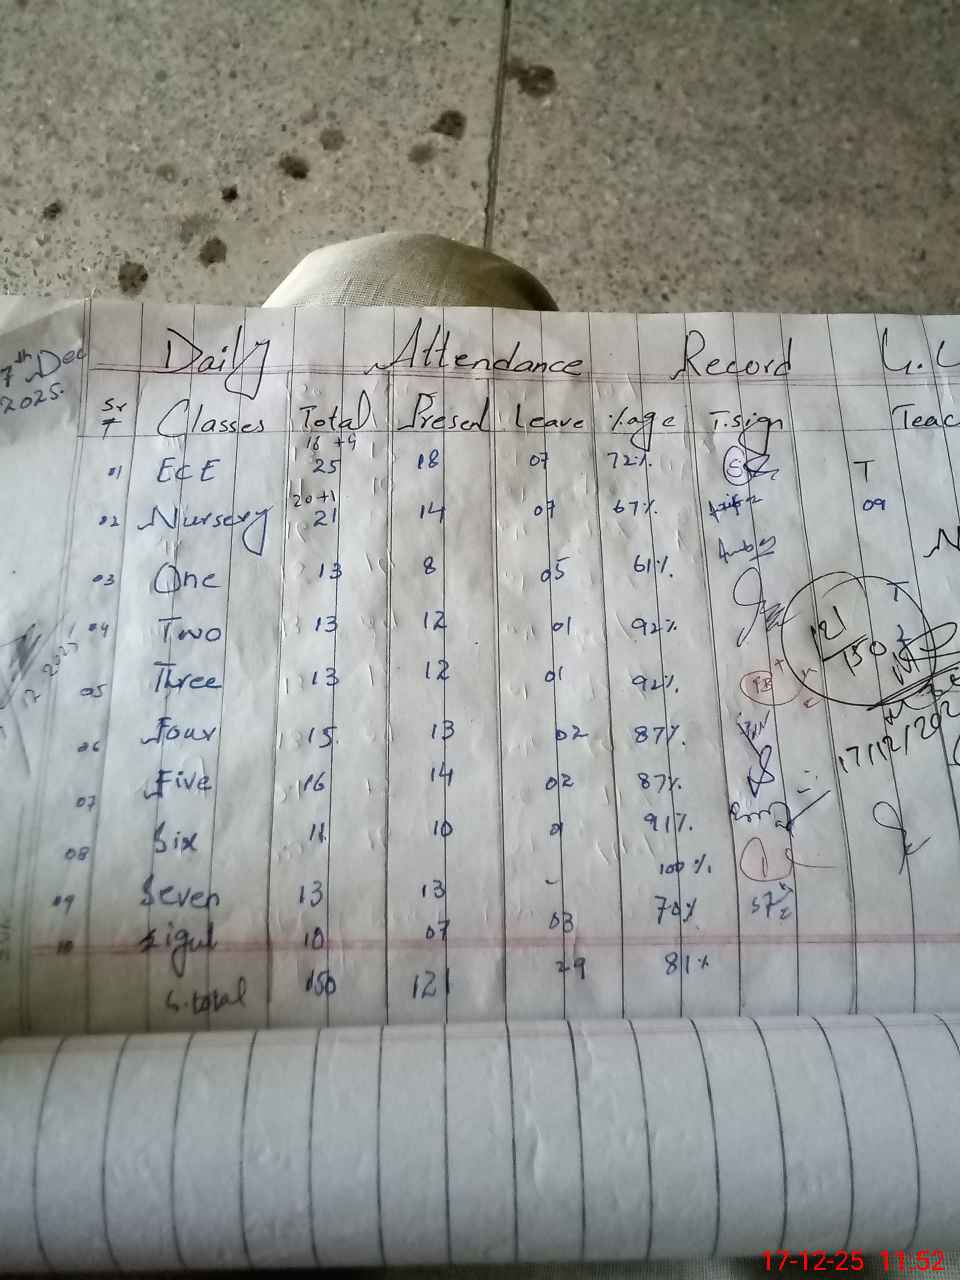 Daily Attendance Record
7th Dec
2025.
Sr Classes Total Present Leave %age T.sign Teac
16 +9
01 ECE 25 18 07 72% T
20+1
02 Nursery 21 14 07 67% 09
03 One 13 8 05 61% T
04 Two 13 12 01 92%
121
150
05 Three 13 12 01 92% TB
06 Four 15 13 02 87%
17/12/202
07 Five 16 14 02 87%
08 Six 11 10 01 91%
09 Seven 13 13 - 100%
10 Eigul 10 07 03 70%
G.total 150 121 29 81%
17-12-25 11:52